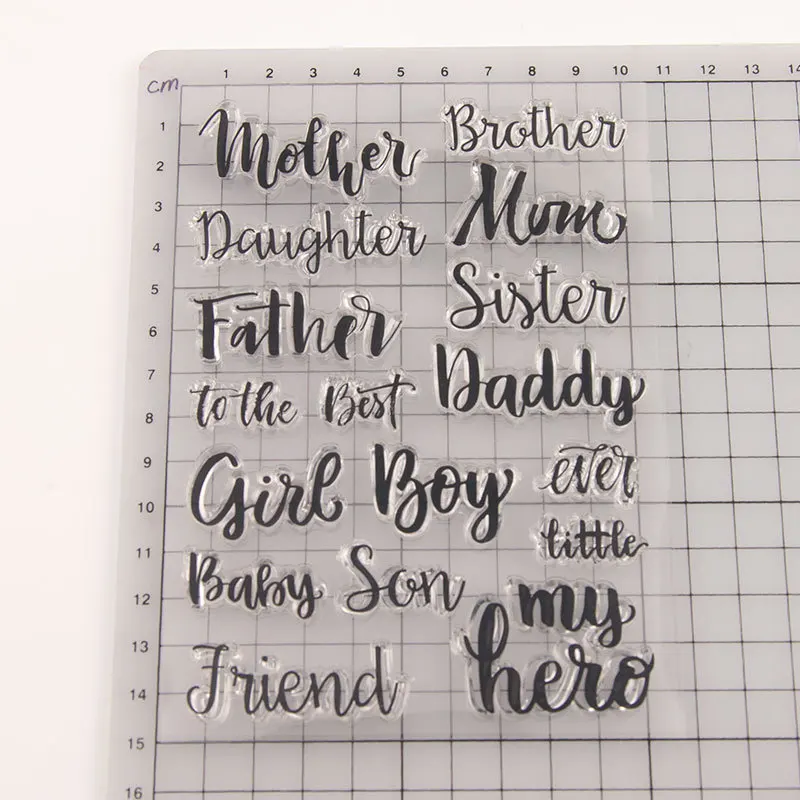 cm
1 2 3 4 5 6 7 8 9 10 11 12 13 14
1
2
3
4
5
6
7
8
9
10
11
12
13
14
15
16
Mother
Brother
Daughter
Mum
Father
Sister
to the Best
Daddy
Girl Boy
ever
little
Baby Son
my
Friend
hero